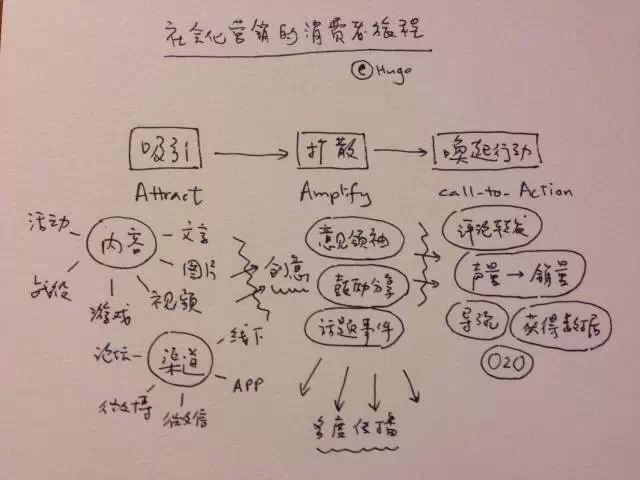 社会化营销的消费者旅程
@Hugo
吸引 → 扩散 → 唤起行动
Attract Amplify call-to-Action
活动
内容
文字
图片
视频
游戏
战役
创意
渠道
论坛
微博
微信
APP
线下
意见领袖
鼓动分享
话题事件
多度传播
评论转发
声量 → 销量
导流
获得数据
O2O